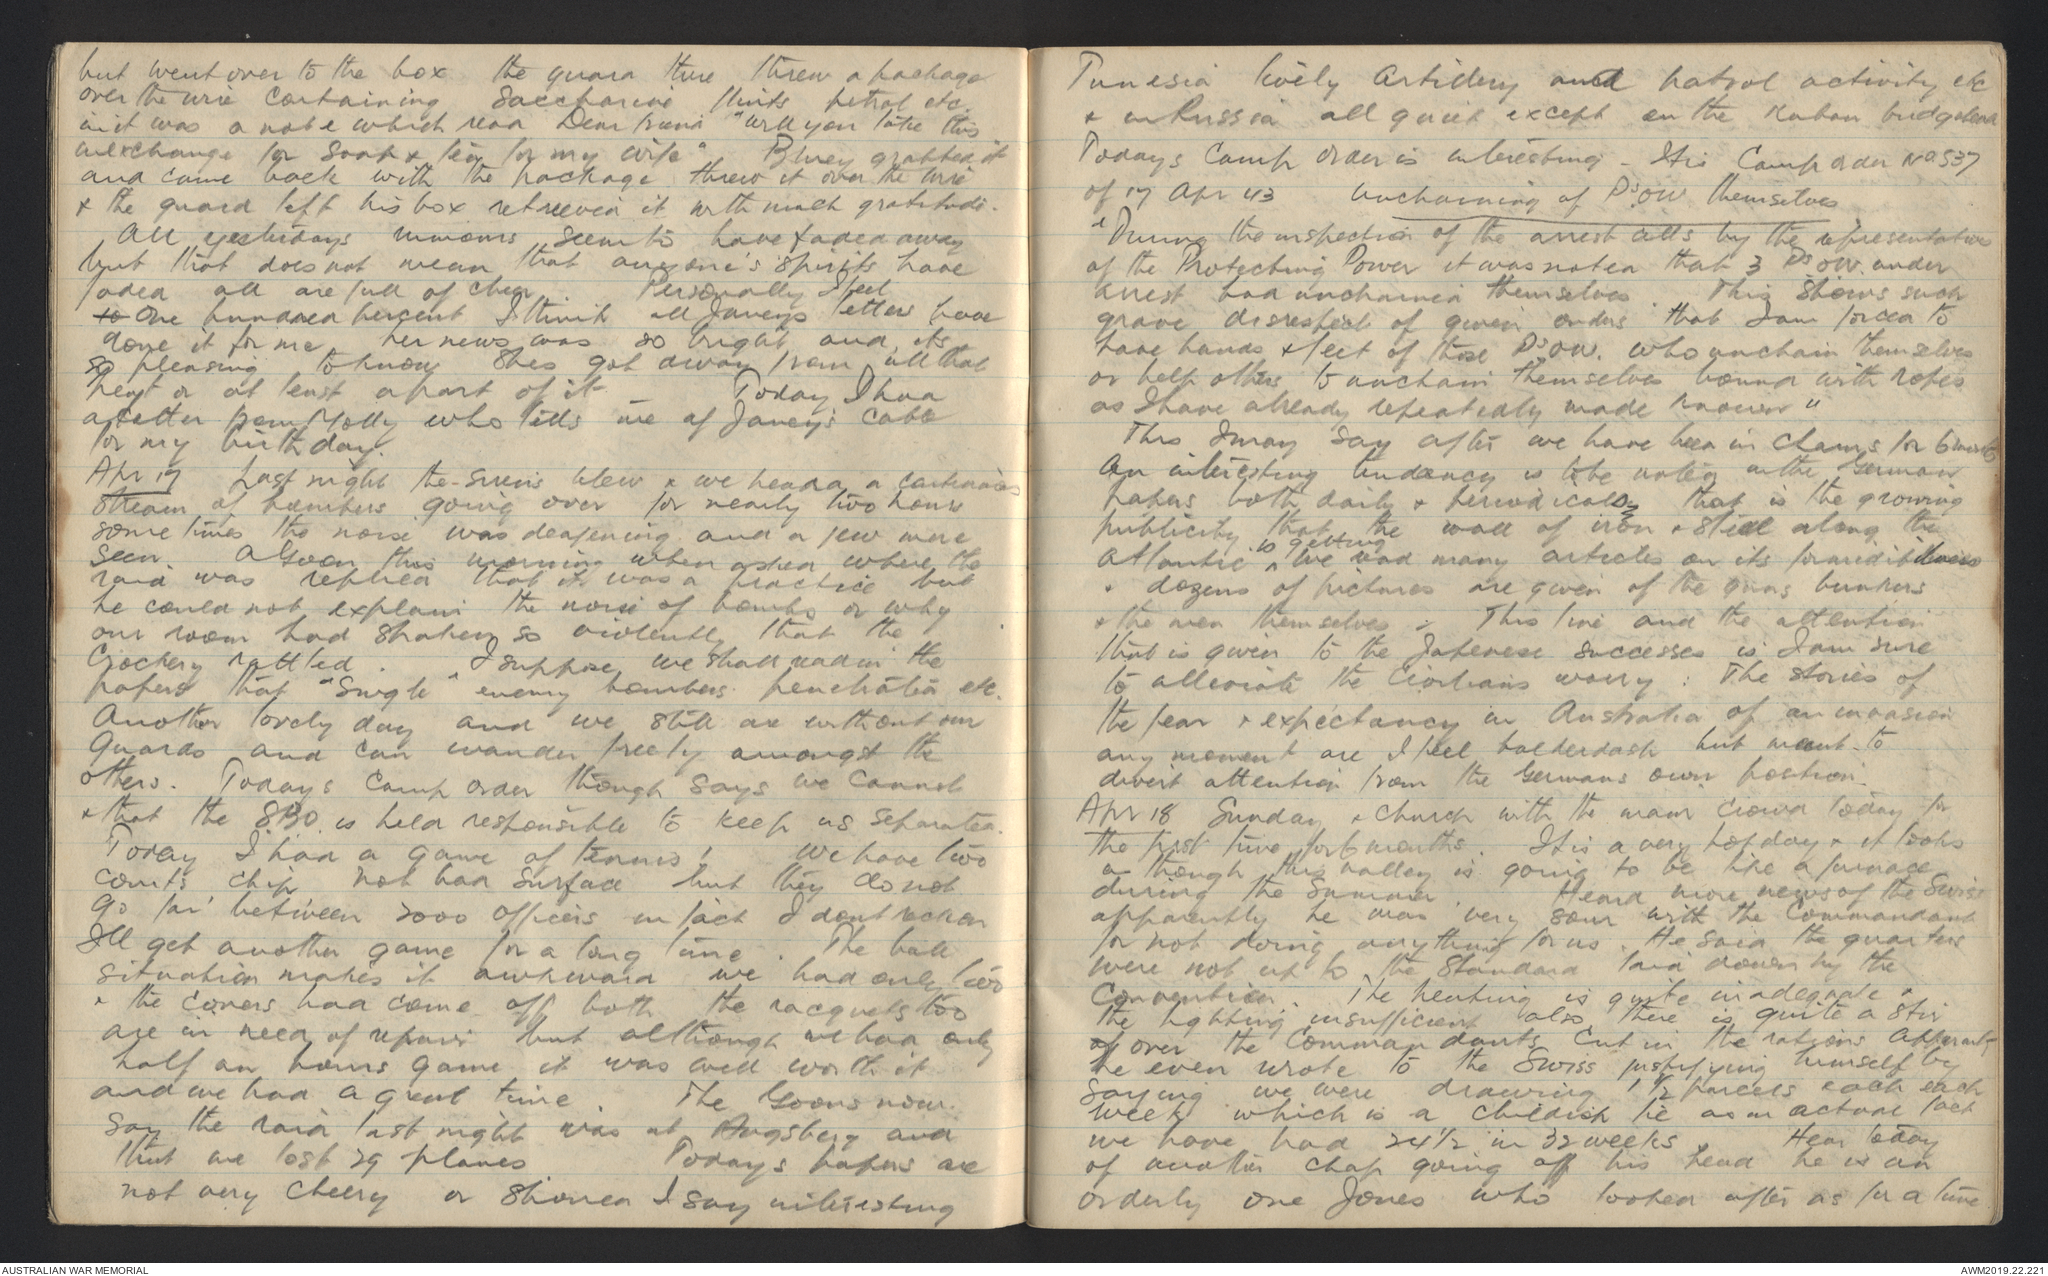 but went over to the box the guard there threw a package
over the wire containing Saccharine flints petrol etc.
in it was a note which read Dear friend "will you take this
in exchange for soap & tea for my wife" Bluey grabbed it
and came back with the package threw it over the wire
& the guard left his box retrieved it with much gratitude.
All yesterdays rumours seem to have faded away
but that does not mean that anyone's spirits have
faded all are full of cheer Personally I feel
one hundred percent I think all Janeys letters have
done it for me her news was so bright and its
so pleasing to know shes got away from all that
or at least a part of it Today I had
a letter from Molly who tells me of Janey's cable
for my birthday.
Apr 17 Last night the sirens blew & we heard a continuous
stream of bombers going over for nearly two hours
some times the noise was deafening and a few were
seen. A Goon this morning when asked where the
raid was replied that it was a practice but
he could not explain the noise of bombs or why
our room had shaken so violently that the
Crockery rattled. I suppose we shall read in the
papers that "Single" enemy bombers penetrated etc.
Another lovely day and we still are without our
Guards and can wander freely amongst the
others. Todays Camp order though says we cannot
& that the SBO is held responsible to keep us separated.
Today I had a game of tennis! We have two
courts chip not bad surface but they do not
go far between 3000 officers in fact I dont reckon
Ill get another game for a long time. The ball
situation makes it awkward we had only two
& the covers had come off both the racquets too
are in need of repair but although we had only
half an hours game it was well worth it
and we had a great time. The Goons now
say the raid last night was at Augsberg and
that we lost 29 planes Todays papers are
not very cheery or should I say interesting
Tunesia lively artillery and patrol activity etc
& in Russia all quiet except on the Kuban bridgehead
Todays Camp order is interesting - It is Camp order No 537
of 17 Apr 43 unchaining of Ps.OW themselves
"During the inspection of the arrest cells by the representatives
of the Protecting Power it was noted that 3 Ps OW. under
arrest had unchained themselves. This shows such
grave disrespect of given orders that I am forced to
have hands & feet of those Ps OW. who unchain themselves
or help others to unchain themselves bound with ropes
as I have already repeatedly made known"
This I may say after we have been in chains for 6 months
An interesting tendency is to be noted in the German
papers both daily & periodicals, that is the growing
publicity that the wall of iron & steel along the
Atlantic is getting We read many articles on its
& dozens of pictures are given of the guns bunkers
& the men themselves. This line and the attention
that is given to the Japenese successes is I am sure
to alleviate the Civilians worry: The stories of
the fear & expectancy in Australia of an invasion
any moment are I feel balderdash but meant to
divert attention from the Germans own position
Apr 18 Sunday & church with the main crowd today for
the first time for 6 months. It is a very hot day & it looks
as though this valley is going to be like a furnace
during the Summer. Heard more news of the Swiss
apparently he was very sour with the Commandant
for not doing anything for us. He said the quarters
were not up to the standard laid down by the
Convention. The heating is quite inadequate &
the lighting insufficient also there is quite a stir
over the Commandants cut in the rations Apparently
he even wrote to the Swiss justifying himself by
saying we were drawing 1 1/2 parcels each each
week which is a childish lie as in actual fact
we have had 24 1/2 in 32 weeks. Hear today
of another chap going off his head he is an
orderly one Jones who looked after us for a time
AUSTRALIAN WAR MEMORIAL
AWM2019.22.221